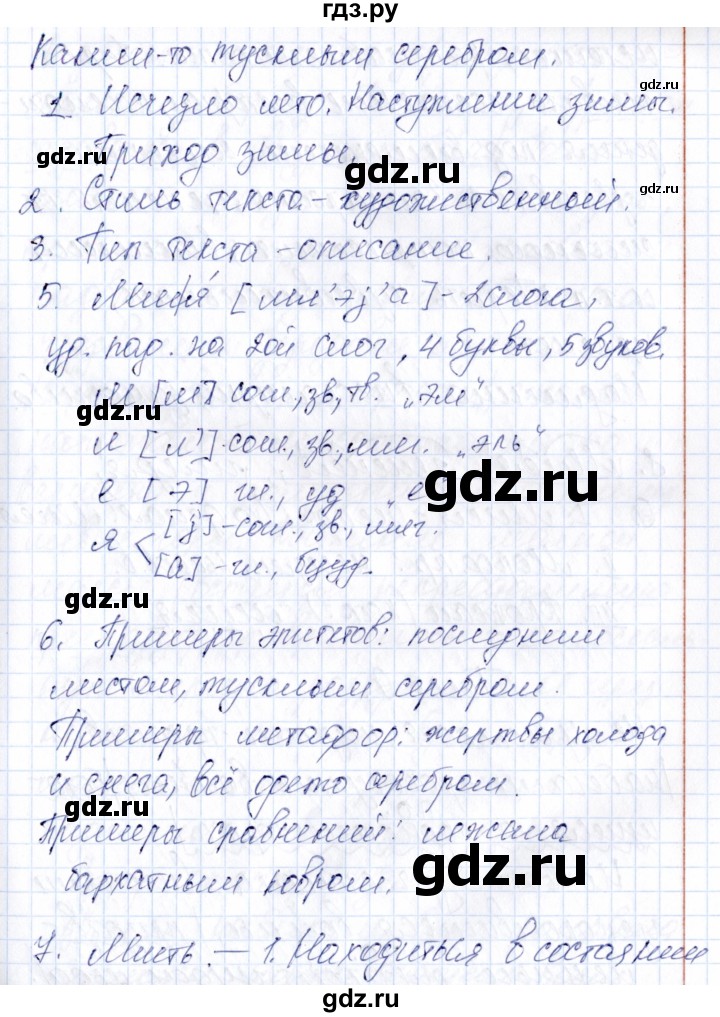 гдз.ру
Каким-то тусклым серебром.
gdz.ru
1. Исчезло лето. Наступление зимы.
gdz.ru
Приход зимы.
gdz.ru
gdz.ru
2. Стиль текста - художественный.
3. Тип текста - описание.
5. [мл'эj'а] - 2 слога,
уд. пад. на 2ой слог, 4 буквы, 5 звуков.
[м] согл., зв., тв. "эм"
gdz.ru
л [л'] - согл., зв., мяг. "эль"
е [э] гл., уд "е"
gdz.ru
я < [j] - согл., зв., мяг.
[а] - гл., безуд.
gdz.ru
6. Примеры эпитетов: последним
листом, тусклым серебром.
Примеры метафор: жертвы холода
и снега, всё серебром.
gdz.ru
Примеры сравнений: лежала
бархатным ковром.
gdz.ru
7. Млеть - 1. Находиться в состоянии
gdz.ru